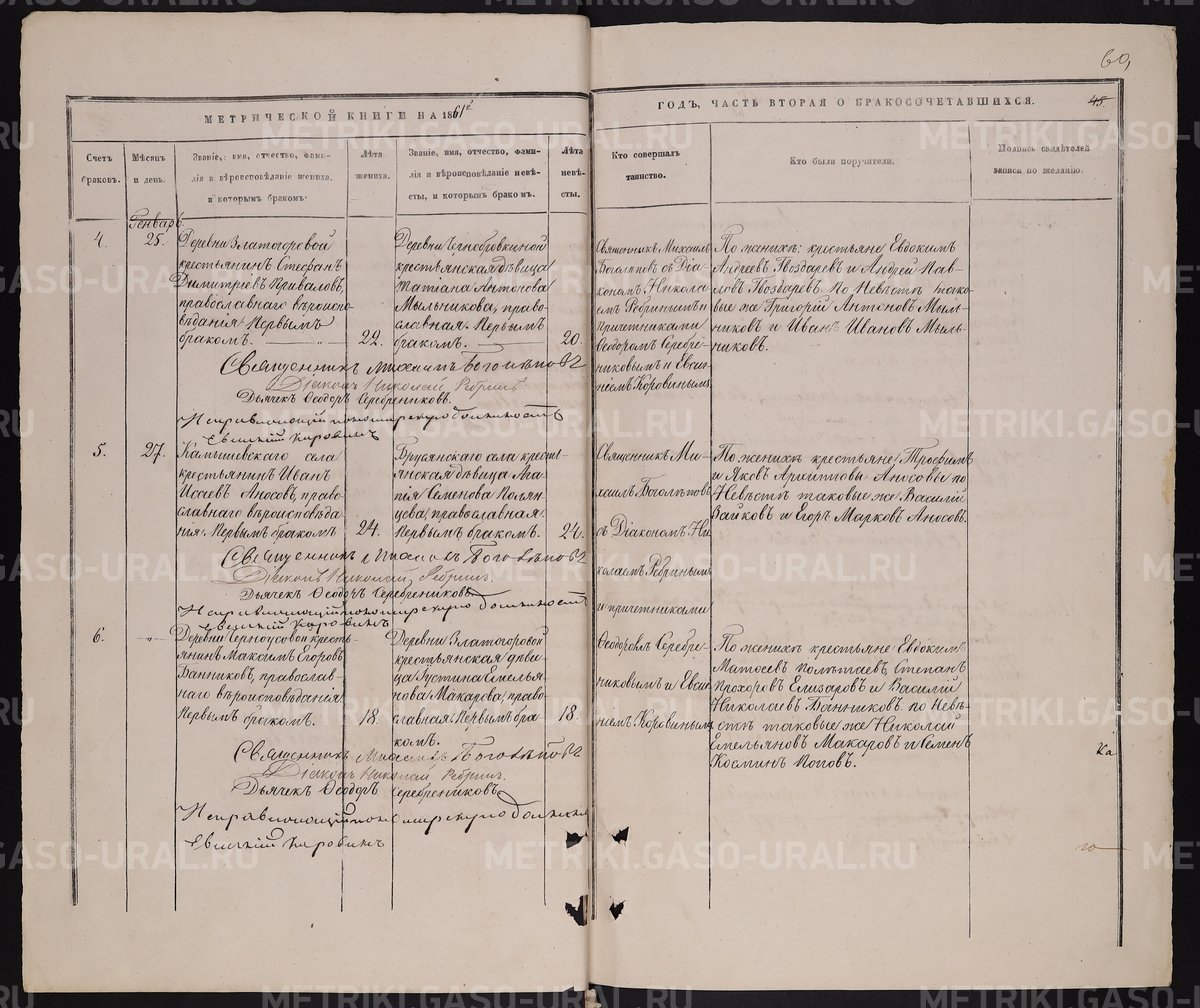 60,
МЕТРИЧЕСКОЙ КНИГИ НА 1861й
ГОДЪ, ЧАСТЬ ВТОРАЯ О БРАКОСОЧЕТАВШИХСЯ.
45.
Счетъ браковъ.
Мѣсяцъ и день.
Званіе, имя, отчество, фами-
лія и вѣроисповѣданіе жениха,
и которымъ бракомъ.
Лѣта жениха.
Званіе, имя, отчество, фами-
лія и вѣроисповѣданіе невѣ-
сты, и которымъ бракомъ.
Лѣта невѣ-
сты.
Кто совершалъ
таинство.
Кто были поручители.
Подпись свидѣтелей
записи по желанію.
Генварь
4.
25.
Деревни Златогоровой
крестьянинъ Стефанъ
Димитріевъ Приваловъ,
православнаго вѣроиспо-
вѣданія. Первымъ
бракомъ.
22.
Деревни Чернобровкиной
крестьянская дѣвица
Татіана Антонова
Мыльникова, право-
славная. Первымъ
бракомъ.
20.
Священникъ Михаилъ
Боголѣповъ съ Діа-
кономъ Никола-
емъ Ребринымъ и
Причетниками
Ѳеодоромъ Серебре-
никовымъ и Евге-
ніемъ Коровинымъ
По женихѣ: крестьяне Евдокимъ
Андреевъ Гвоздаревъ и Андрей Пав-
ловъ Гвоздаревъ. По Невѣстѣ тако-
вые же Григорій Антоновъ Мыль-
никовъ и Иванъ Ивановъ Мыль-
никовъ.
Священникъ Михаилъ Боголѣповъ
Діаконъ Николай Ребринъ.
Дьячекъ Ѳеодоръ Серебрениковъ.
Исправляющій пономарскую должность
Евгеній Коровинъ
5.
27.
Камышевскаго села
крестьянинъ Иванъ
Исаевъ Аносовъ, право-
славнаго вѣроисповѣда-
нія. Первымъ бракомъ
24.
Брусянскаго села кресть-
янская дѣвица Ага-
пія Семенова Полян-
цева, православная.
Первымъ бракомъ.
24.
Священникъ Ми-
хаилъ Боголѣповъ
съ Діакономъ Ни-
колаемъ Ребринымъ
и причетниками
По женихѣ крестьяне Трофимъ
и Яковъ Архиповы Аносовы по
Невѣстѣ таковые же Василій
Зайковъ и Егоръ Марковъ Аносовъ.
Священникъ Михаилъ Боголѣповъ
Діаконъ Николай Ребринъ.
Дьячекъ Ѳеодоръ Серебрениковъ
Исправляющій пономарскую должность
Евгеній Коровинъ
6.
-"-
Деревни Черноусовой кресть-
янинъ Максимъ Егоровъ
Банниковъ, православ-
наго вѣроисповѣданія
Первымъ бракомъ.
18.
Деревни Златогоровой
крестьянская дѣви-
ца Іустина Емелья-
нова Макарова, право-
славная Первымъ бра-
комъ.
18.
Ѳеодоромъ Серебре-
никовымъ и Евге-
ніемъ Коровинымъ
По женихѣ крестьяне Евдокимъ
Матѳеевъ Полѣтаевъ, Степанъ
Прохоровъ Елизаровъ и Василій
Николаевъ Банниковъ. по Невѣ-
стѣ таковые же Николай
Емельяновъ Макаровъ и Семенъ
Косминъ Поповъ.
Ка
Священникъ Михаилъ Боголѣповъ
Діаконъ Николай Ребринъ.
Дьячекъ Ѳеодоръ Серебрениковъ
Исправляющій пономарскую должность
Евгеній Коровинъ
го
METRIKI.GASO-URAL.RU